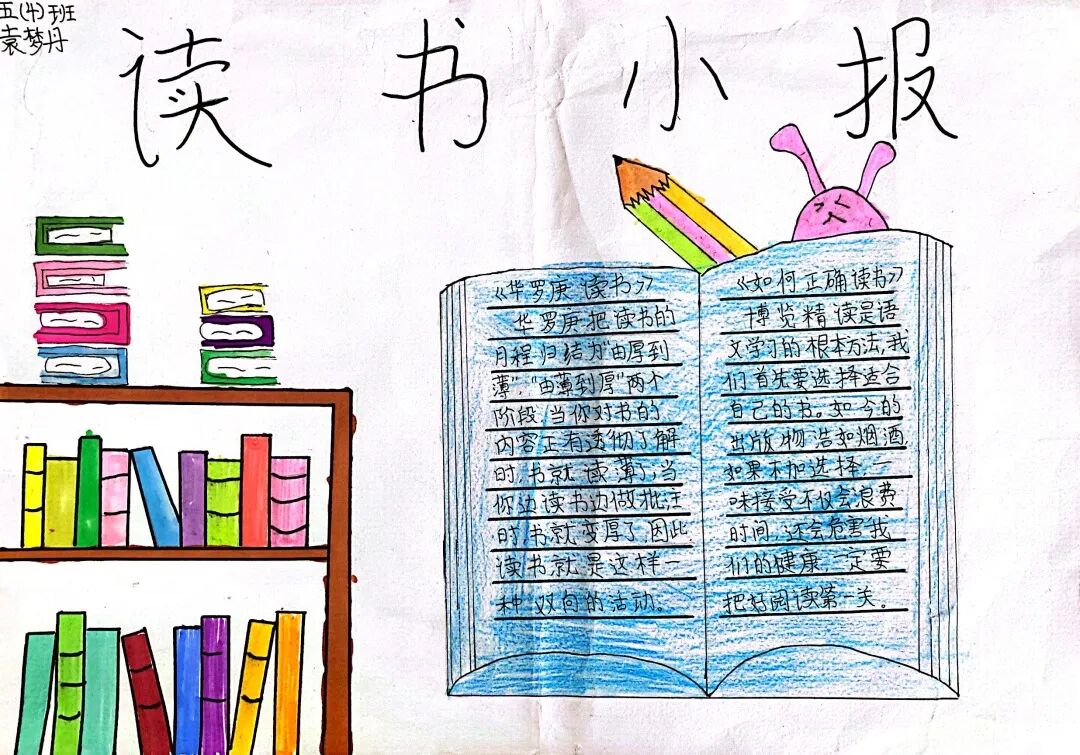 五(4)班
袁梦丹
读书小报
《华罗庚读书》
华罗庚把读书的
月程归结为"由厚到
薄","由薄到厚"两个
阶段,当你对书的
内容正有透彻了解
时,书就读薄了,当
你边读书边做批注
时,书就变厚了,因此
读书就是这样一
种双向的活动。
《如何正确读书》
博览精读是语
文学习的根本方法,我
们首先要选择适合
自己的书。如今的
出版物浩如烟酒,
如果不加选择,一
味接受不仅会浪费
时间,还会危害我
们的健康,一定要
把好阅读第一关。